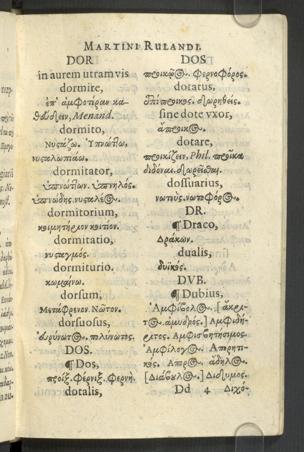 MARTINI RULANDI.
DOR
in aurem utramvis
dormire,
ἐπ' ἀμφοτέραν κα-
θεύδειν, Menand.
dormito,
Νυστάζω. Ὑπνώττω.
νυσταλωπιάω.
dormitator,
ὑπνωτίων. ὑπνηλός.
ὑπνώδης. νυσταλέος.
dormitorium,
κοιμητήριον κοιτών.
dormitatio,
νυσταγμός.
dormiturio.
dorsum,
Μετάφρενον. Νῶτον.
dorsuosus,
εὐρύνωτος. πολύνωτος.
DOS.
¶ Dos,
προίξ. Φέρνιξ. Φερνή.
dotalis,
DOS
προικῷος. Φερνοφόρος.
dotatus,
sine dote vxor,
ἄπροικος.
dotare,
προικίζειν, Phil. προῖκα
διδόναι.
dossuarius,
νωτοφόρος.
DR.
¶ Draco,
Δράκων.
dualis,
δυϊκός.
DVB.
¶ Dubius,
Ἀμφίβολος. [ἄκρι-
τος. ἀμυδρός.] Ἀμφιδή-
ριτος. Ἀμφισβητήσιμος.
Ἀμφίλογος. Ἀπορητι-
κός. Ἄπορος. ἄδηλος.
Δίδυμος.
Dd 4 Διχό-